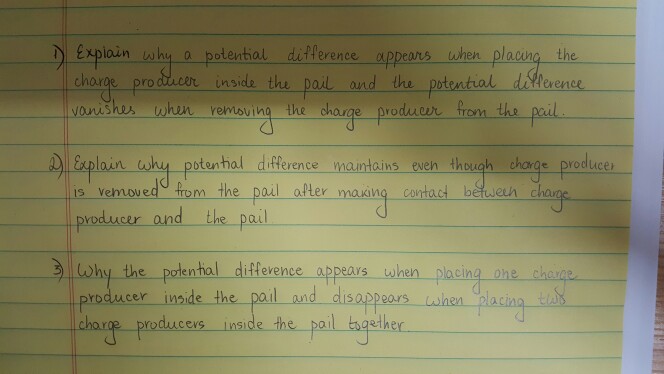 1) Explain why a potential difference appears when placing the
charge producer inside the pail and the potential difference
vanishes when removing the charge producer from the pail.
2) Explain why potential difference maintains even though charge producer
is removed from the pail after making contact between charge
producer and the pail
3) Why the potential difference appears when placing one charge
producer inside the pail and disappears when placing two
charge producers inside the pail together.